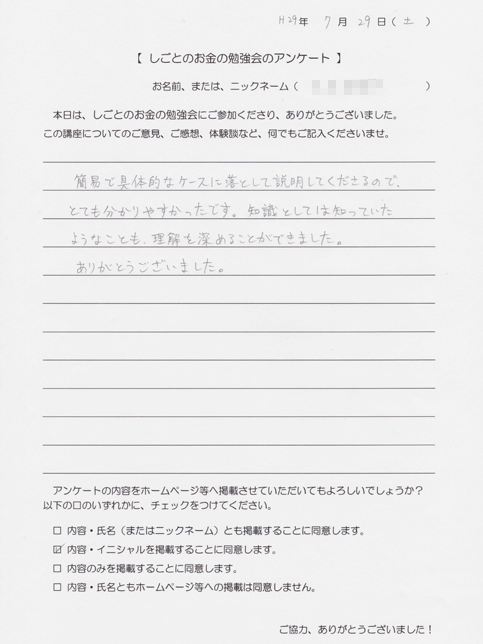 H29年 7月 29日(土)
【 しごとのお金の勉強会のアンケート 】
お名前、または、ニックネーム( )
本日は、しごとのお金の勉強会にご参加くださり、ありがとうございました。
この講座についてのご意見、ご感想、体験談など、何でもご記入くださいませ。
簡易で具体的なケースに落として説明してくださるので、
とても分かりやすかったです。知識としては知っていた
ようなことも、理解を深めることができました。
ありがとうございました。
アンケートの内容をホームページ等へ掲載させていただいてもよろしいでしょうか?
以下の口のいずれかに、チェックをつけてください。
□ 内容・氏名(またはニックネーム)とも掲載することに同意します。
☑ 内容・イニシャルを掲載することに同意します。
□ 内容のみを掲載することに同意します。
□ 内容・氏名ともホームページ等への掲載は同意しません。
ご協力、ありがとうございました!